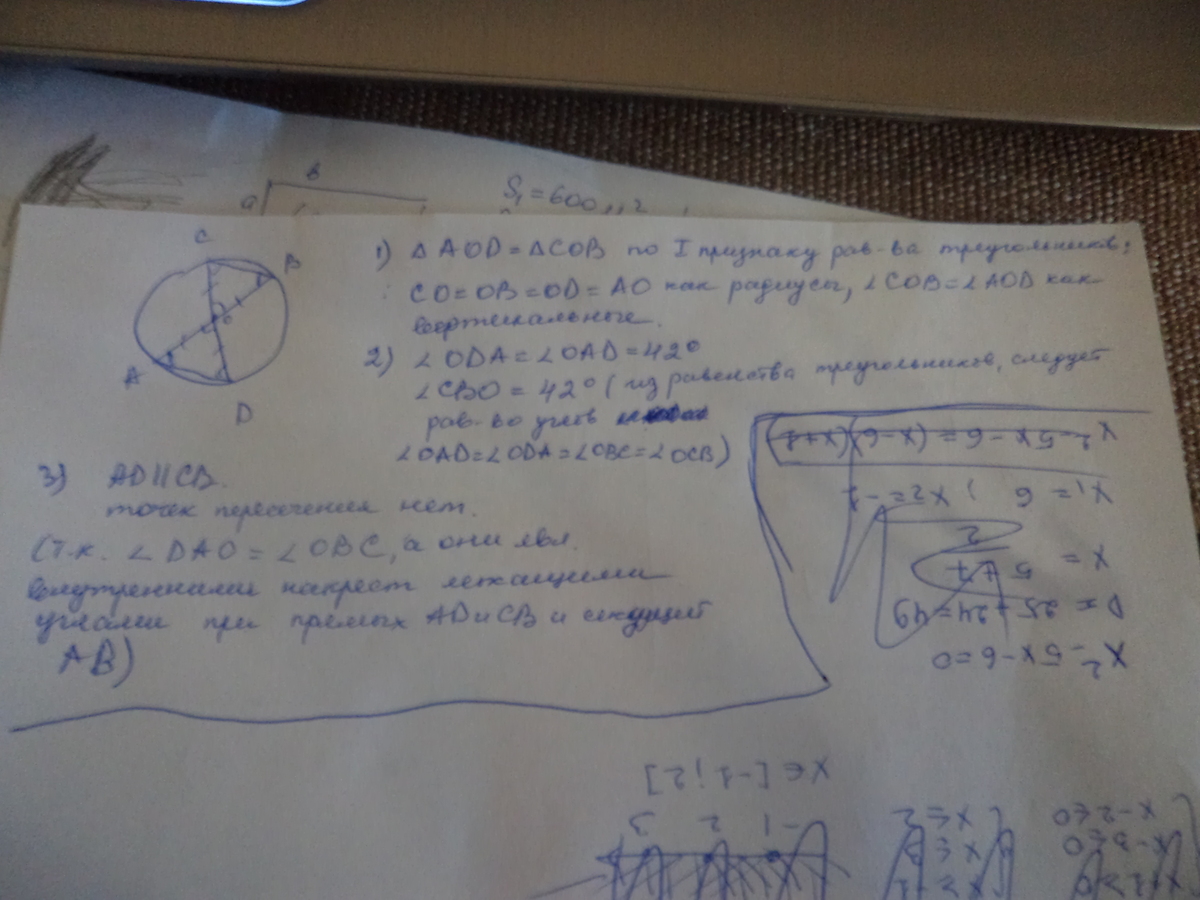 в
a
S₁ = 600
C
B
O
A
D
1) △AOD = △COB по I признаку рав-ва треугольников:
CO=OB=OD=AO как радиусы, ∠COB=∠AOD как
вертикальные.
2) ∠ODA = ∠OAD = 42°
∠CBO = 42° (из равенства треугольников, следует
рав-во углов
∠OAD=∠ODA=∠OBC=∠OCB)
3) AD||CB.
точек пересечения нет.
(т.к. ∠DAO = ∠OBC, а они явл.
внутренними накрест лежащими
углами при прямых AD и CB и секущей
AB)
x²-5x-6=0
D = 25+24=49
x = 5±7
2
x₁ = 6 ; x₂=-1
x²-5x-6=(x-6)(x+1)
x-2≤0
x-3≤0
x+1≥0
x≤2
x≤3
x≥-1
-1 2 3
x∈[-1;2]